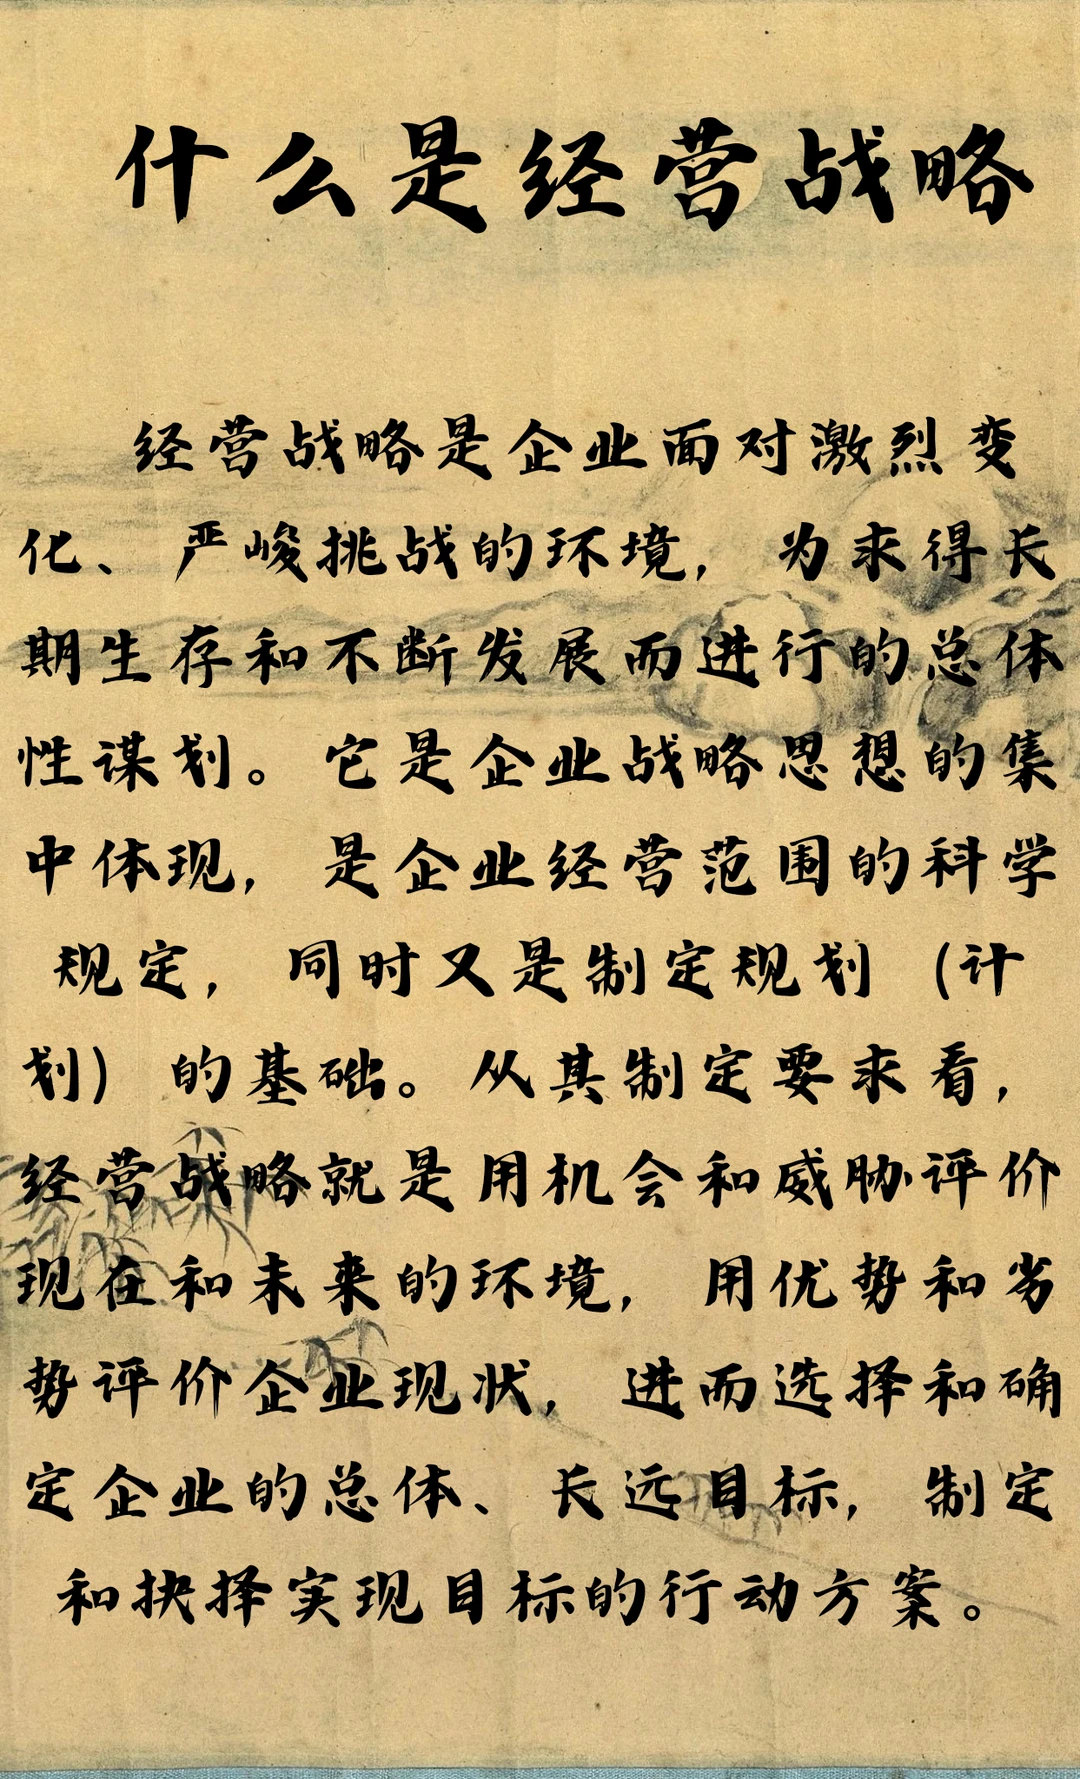 什么是经营战略
经营战略是企业面对激烈变
化、严峻挑战的环境，为求得长
期生存和不断发展而进行的总体
性谋划。它是企业战略思想的集
中体现，是企业经营范围的科学
规定，同时又是制定规划（计
划）的基础。从其制定要求看，
经营战略就是用机会和威胁评价
现在和未来的环境，用优势和劣
势评价企业现状，进而选择和确
定企业的总体、长远目标，制定
和抉择实现目标的行动方案。